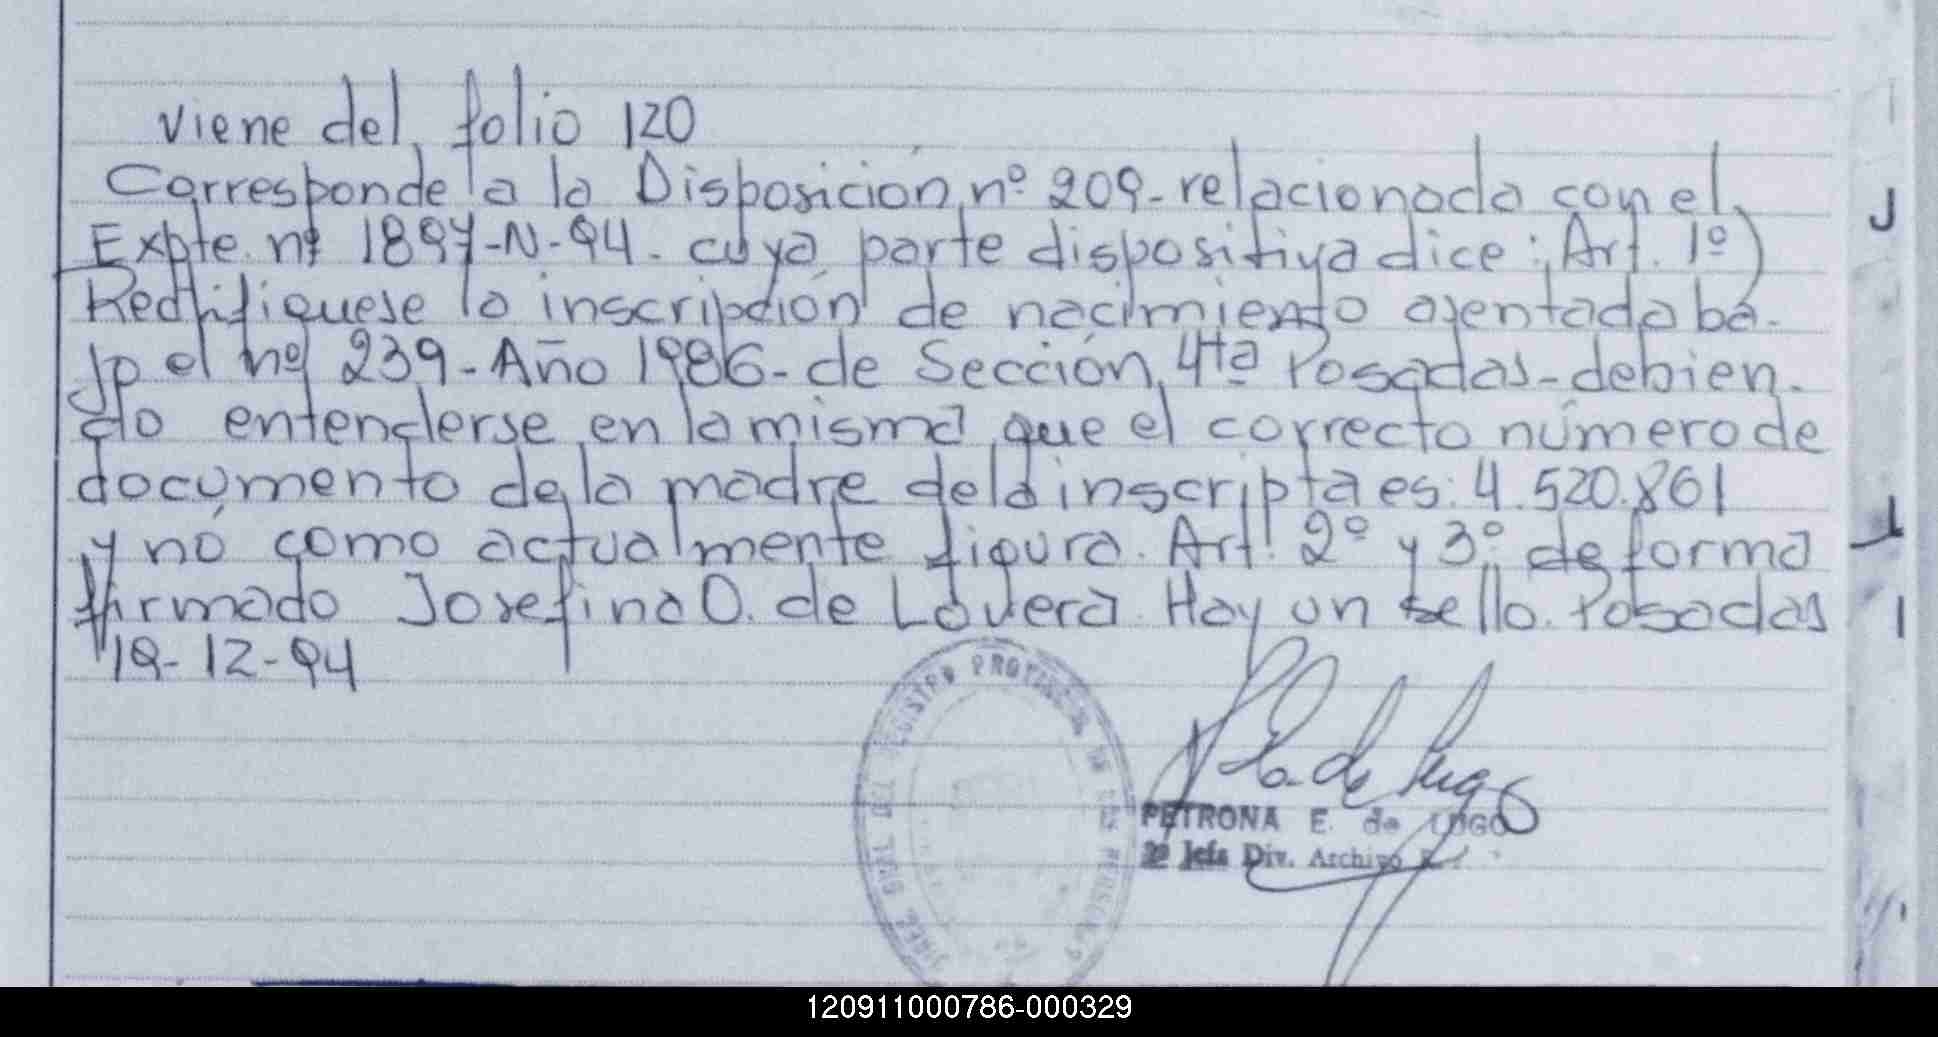 viene del folio 120
Corresponde a la Disposición nº 209-relacionada con el
Expte. nº 1897-N-94. cuya parte dispositiva dice: Art. 1º)
Rectifiquese la inscripción de nacimiento asentada ba-
jo el nº 239-Año 1986-de Sección 4ta Posadas-debien-
do entenderse en la misma que el correcto número de
documento de la madre de la inscripta es: 4.520.861
y nó como actualmente figura. Art. 2º y 3º de forma
firmado Josefina O. de Lovera. Hay un sello. Posadas
19-12-94
REGISTRO PROVINCIAL DE LAS PERSONAS
PETRONA E. de LUGO
2º Jefa Div. Archivo
120911000786-000329